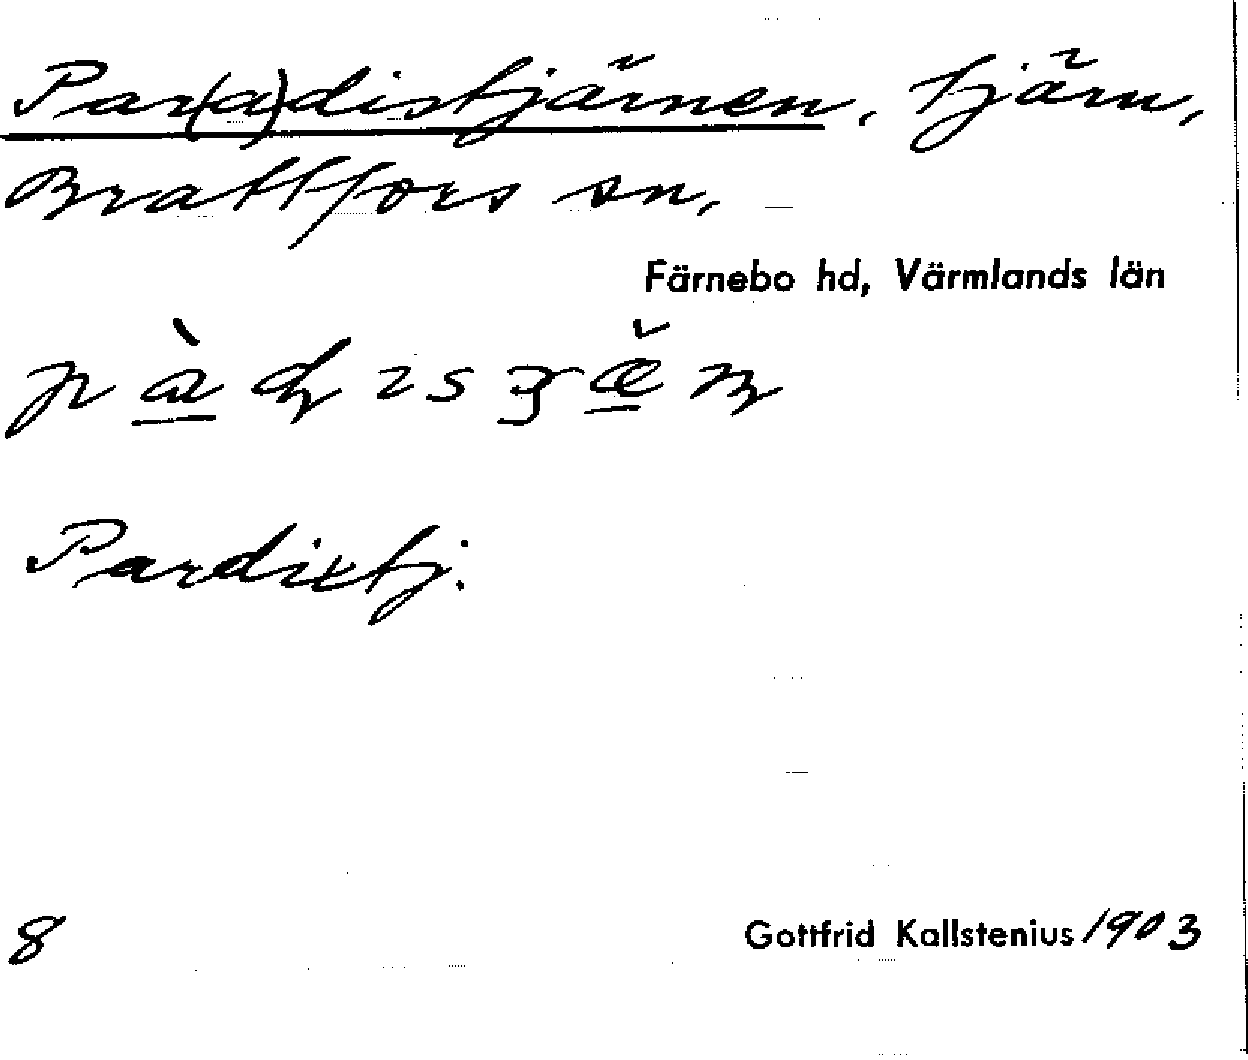 Par(a)distjärnen, tjärn,
Brattfors sn,
Färnebo hd, Värmlands län
Pardistj.
8
Gottfrid Kallstenius 1903